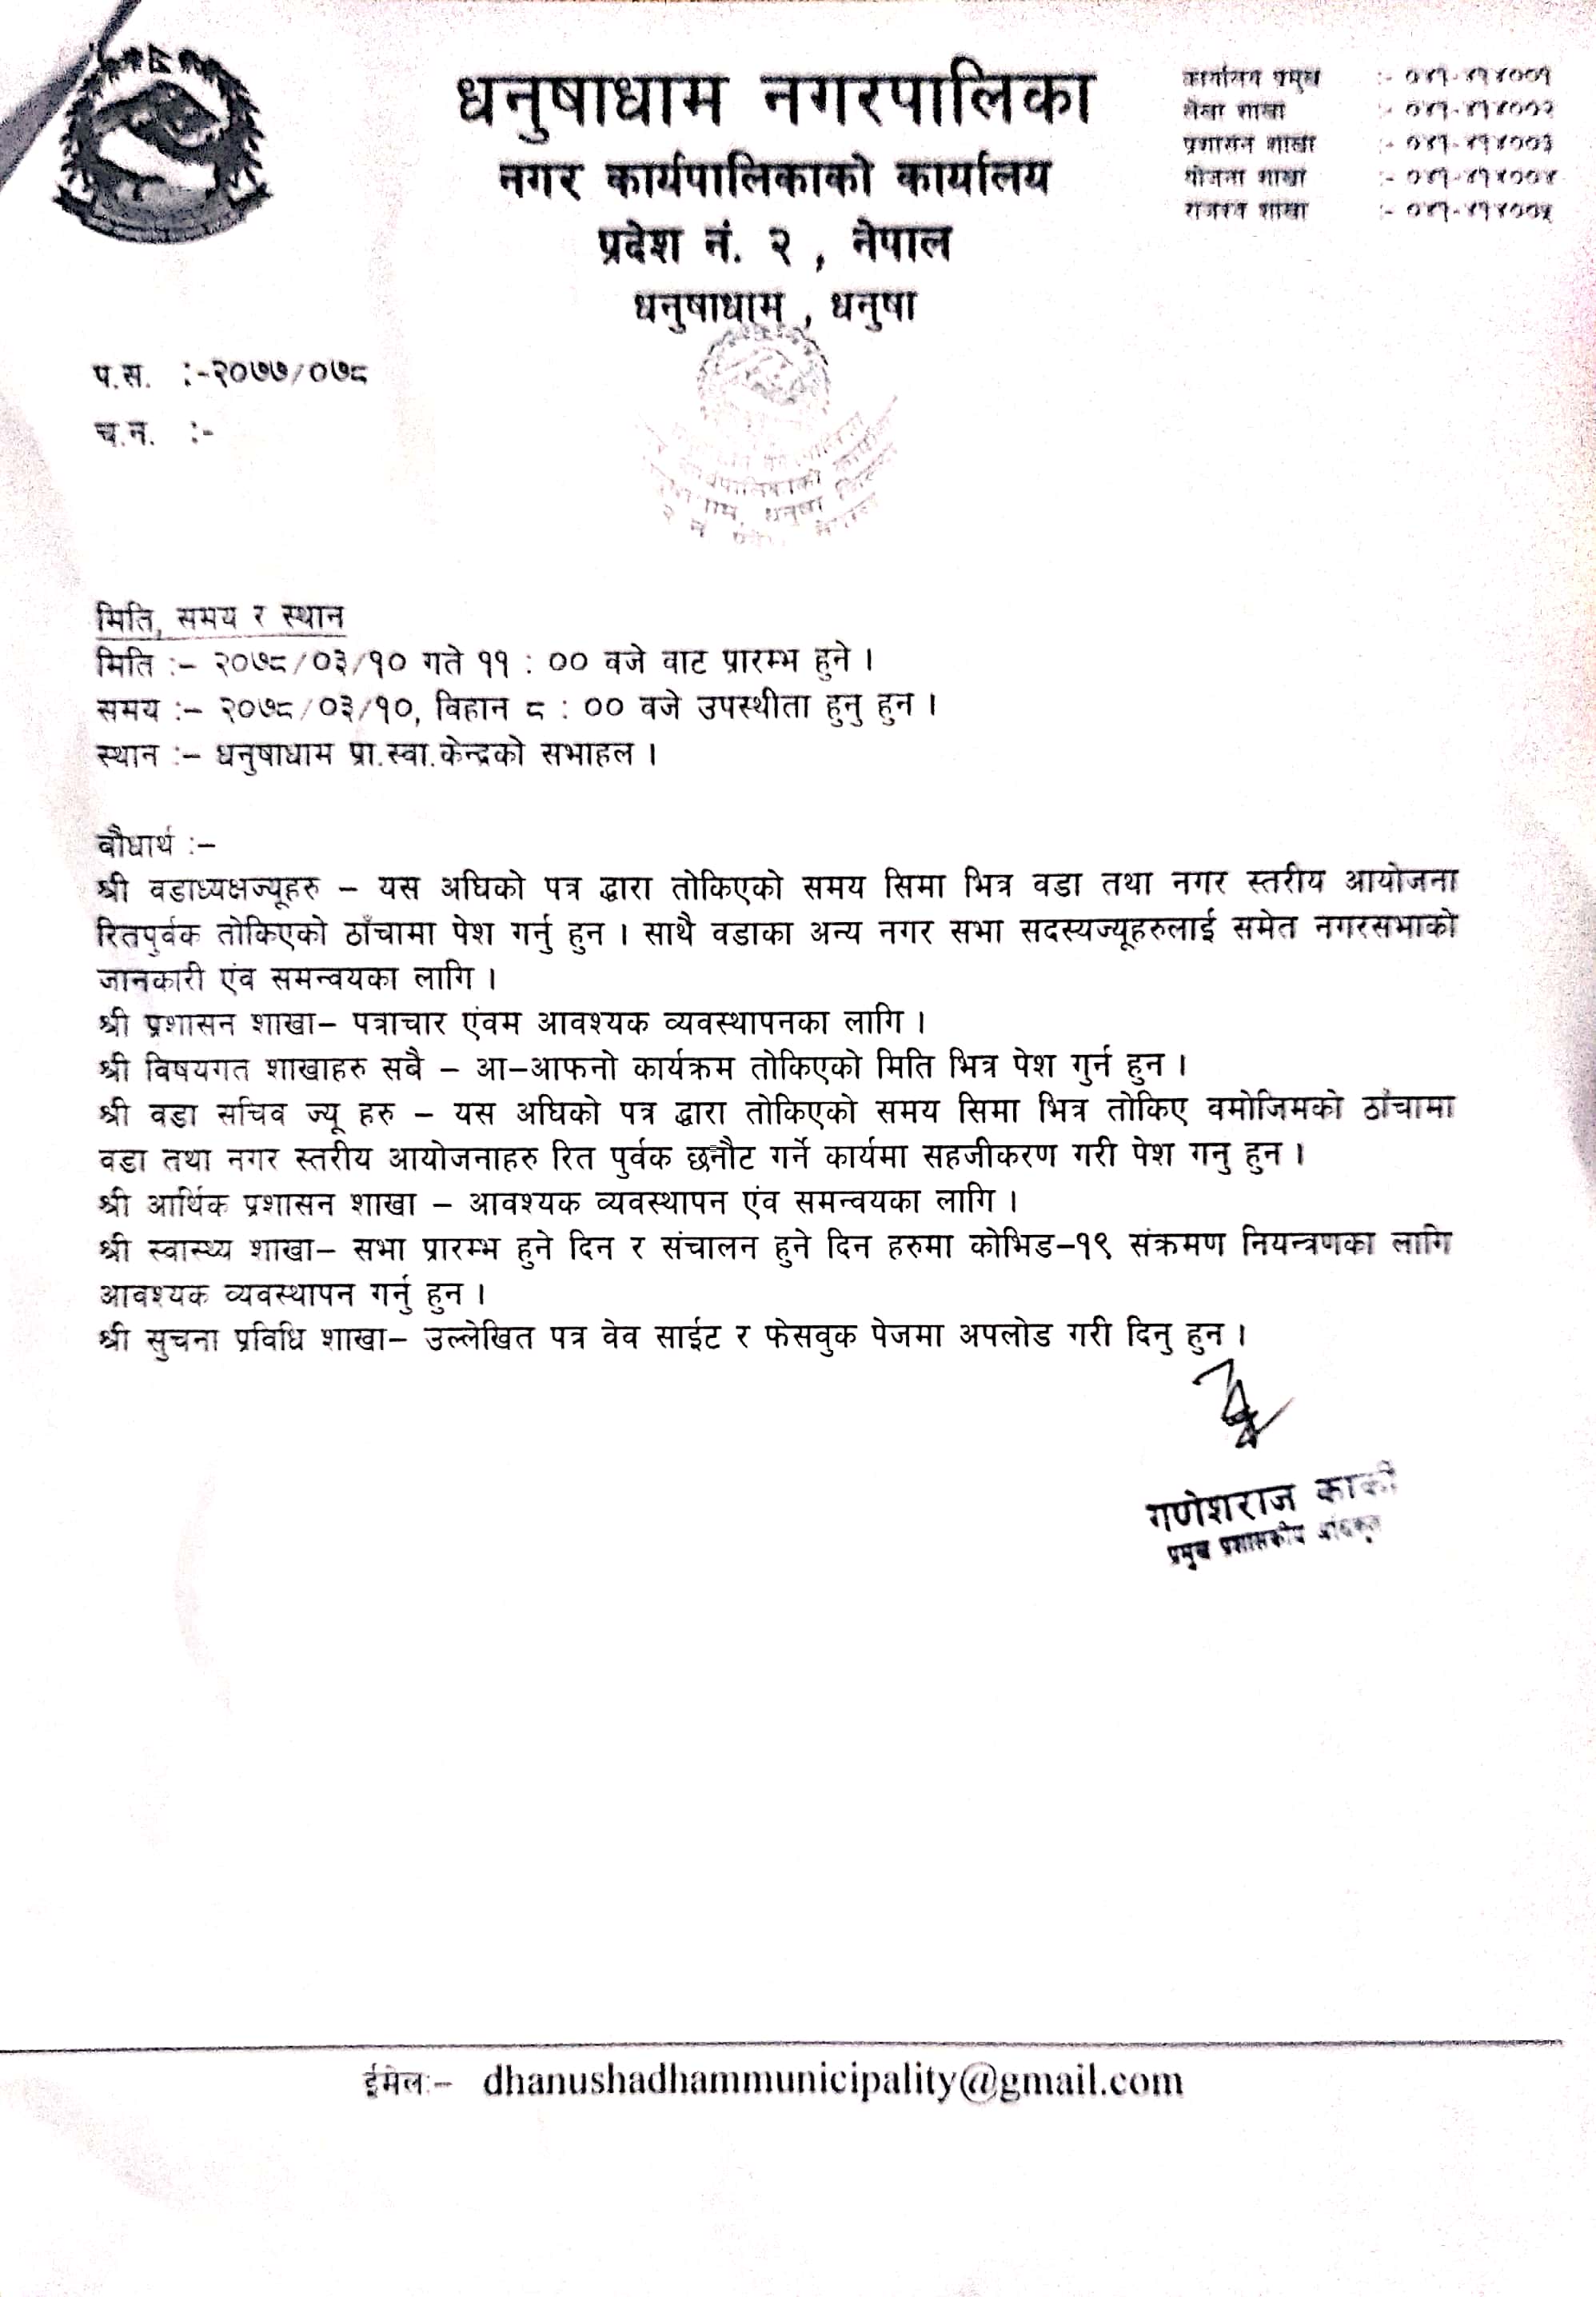 धनुषाधाम नगरपालिका
नगर कार्यपालिकाको कार्यालय
प्रदेश नं. २ , नेपाल
धनुषाधाम , धनुषा
कार्यालय प्रमुख :- ०४१-४१४००१
लेखा शाखा :- ०४१-४१४००२
प्रशासन शाखा :- ०४१-४१४००३
योजना शाखा :- ०४१-४१४००४
राजश्व शाखा :- ०४१-४१४००५
प.स. :-२०७७/०७८
च.न. :-
मिति, समय र स्थान
मिति :– २०७८/०३/१० गते ११ : ०० वजे वाट प्रारम्भ हुने ।
समय :– २०७८/०३/१०, विहान ८ : ०० वजे उपस्थीता हुनु हुन ।
स्थान :– धनुषाधाम प्रा.स्वा.केन्द्रको सभाहल ।
बौधार्थ :–
श्री वडाध्यक्षज्यूहरु – यस अघिको पत्र द्धारा तोकिएको समय सिमा भित्र वडा तथा नगर स्तरीय आयोजना
रितपुर्वक तोकिएको ठाँचामा पेश गर्नु हुन । साथै वडाका अन्य नगर सभा सदस्यज्यूहरुलाई समेत नगरसभाको
जानकारी एंव समन्वयका लागि ।
श्री प्रशासन शाखा– पत्राचार एंवम आवश्यक व्यवस्थापनका लागि ।
श्री विषयगत शाखाहरु सबै – आ–आफनो कार्यक्रम तोकिएको मिति भित्र पेश गुर्न हुन ।
श्री वडा सचिव ज्यू हरु – यस अघिको पत्र द्धारा तोकिएको समय सिमा भित्र तोकिए वमोजिमको ठाँचामा
वडा तथा नगर स्तरीय आयोजनाहरु रित पुर्वक छनौट गर्ने कार्यमा सहजीकरण गरी पेश गनु हुन ।
श्री आर्थिक प्रशासन शाखा – आवश्यक व्यवस्थापन एंव समन्वयका लागि ।
श्री स्वास्थ्य शाखा– सभा प्रारम्भ हुने दिन र संचालन हुने दिन हरुमा कोभिड–१९ संक्रमण नियन्त्रणका लागि
आवश्यक व्यवस्थापन गर्नु हुन ।
श्री सुचना प्रविधि शाखा– उल्लेखित पत्र वेव साईट र फेसवुक पेजमा अपलोड गरी दिनु हुन ।
गणेशराज कार्की
प्रमुख प्रशासकीय अधिकृत
ईमेलः– dhanushadhammunicipality@gmail.com